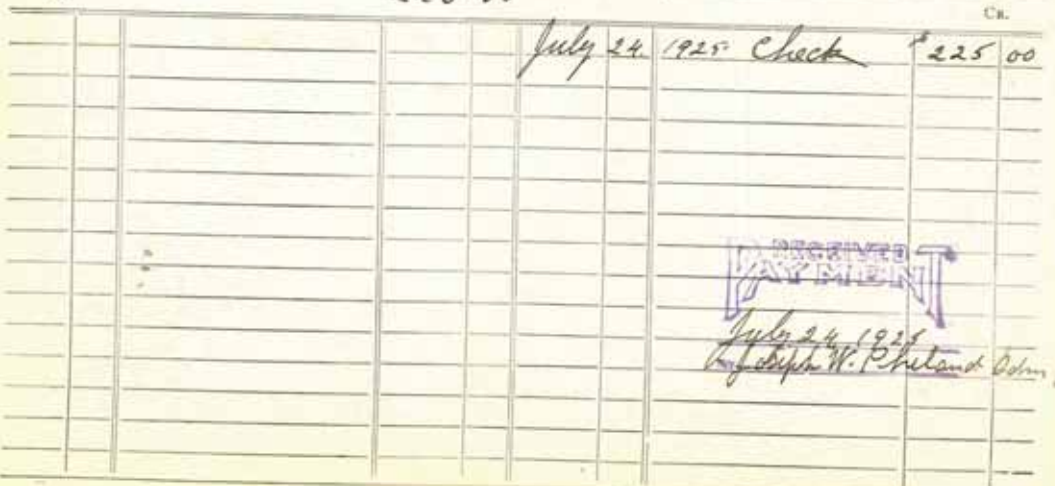 CR.
July 24. 1925 Check $225 00
RECEIVED
PAYMENT
July 24 1925
Joseph W. Adm